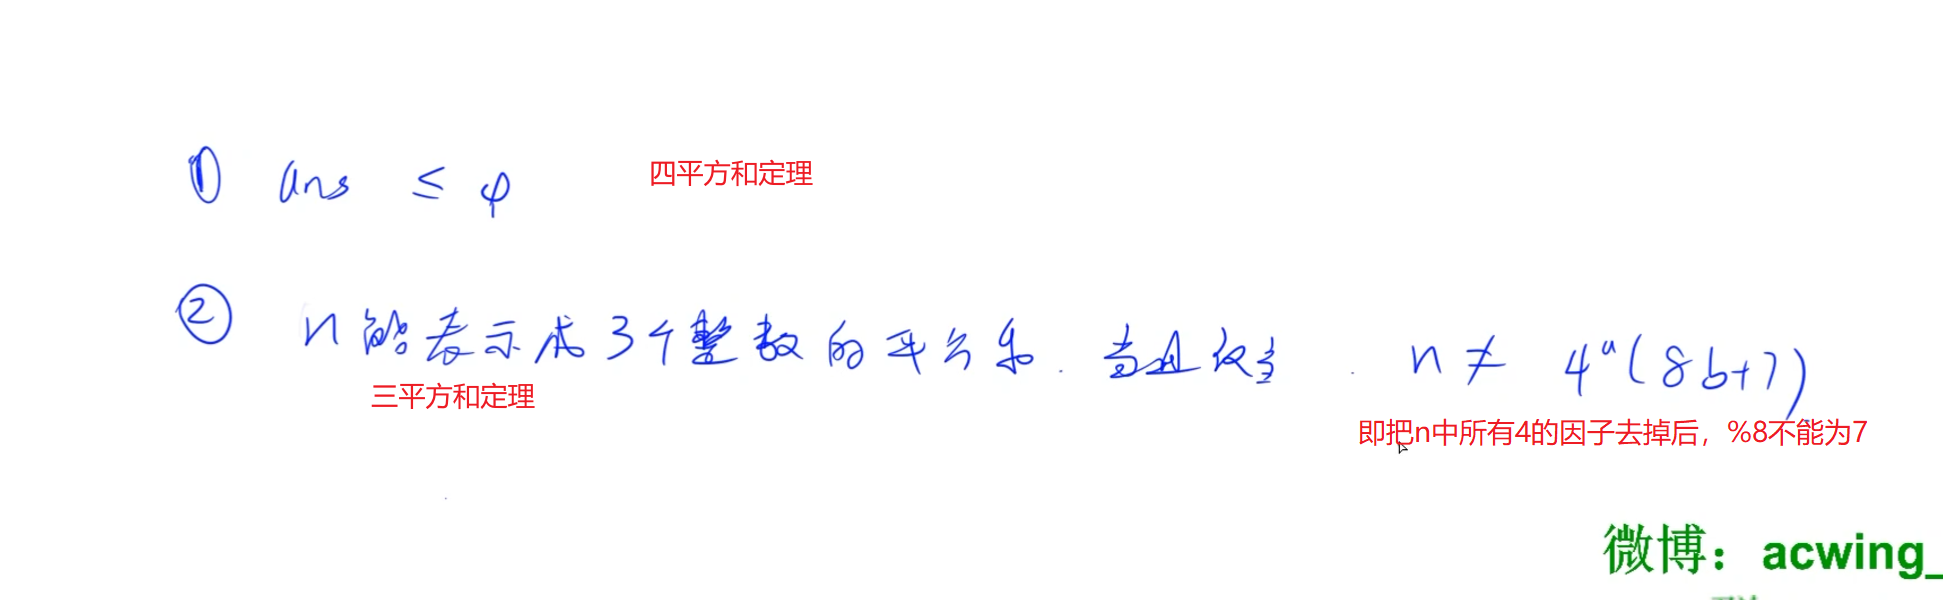 ① ans ≤ 4 四平方和定理
② n能表示成3个整数的平方和. 当且仅当. n ≠ 4ᵃ(8b+7)
三平方和定理
即把n中所有4的因子去掉后，%8不能为7
微博：acwing_